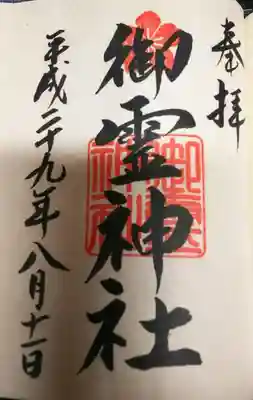 奉拝
御霊神社
平成二十九年八月十一日